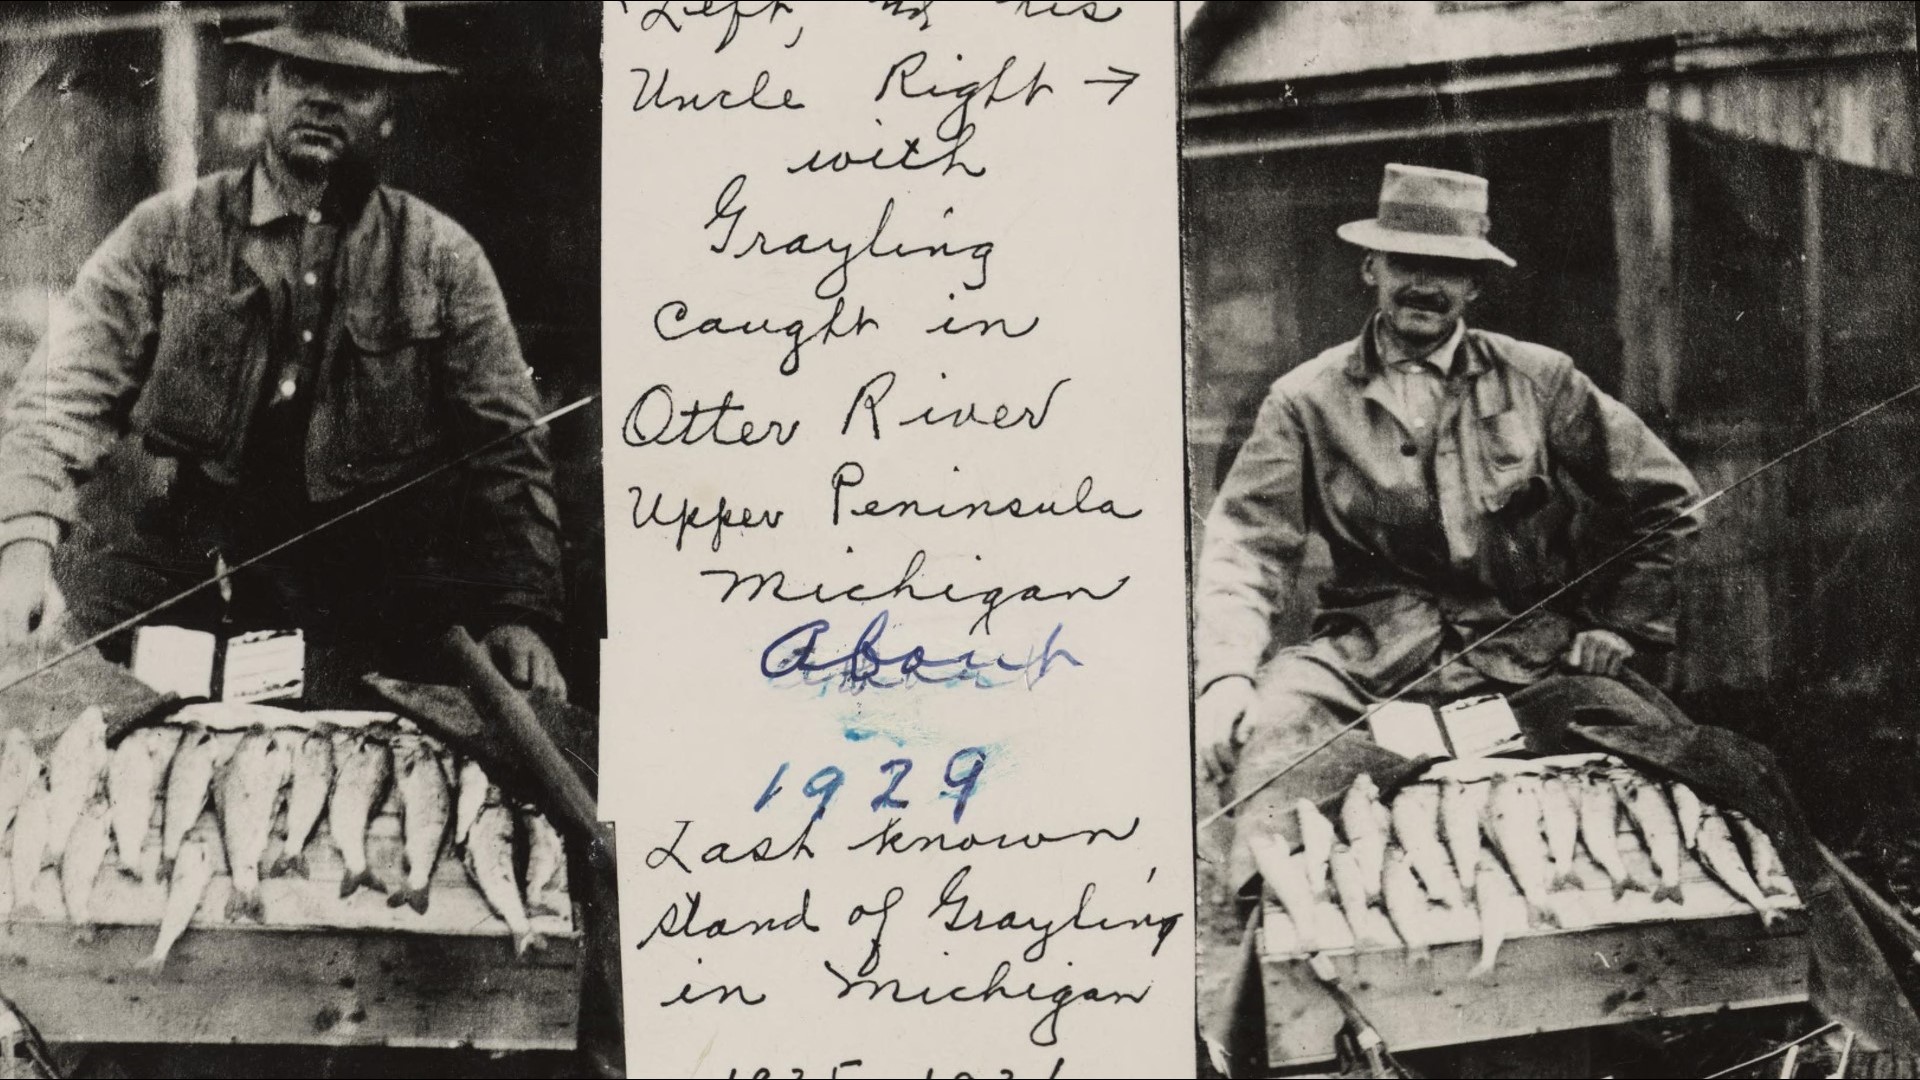 Left, and his
Uncle Right →
with
Grayling
Caught in
Otter River
Upper Peninsula
Michigan
About
1929
Last known
stand of Grayling
in Michigan